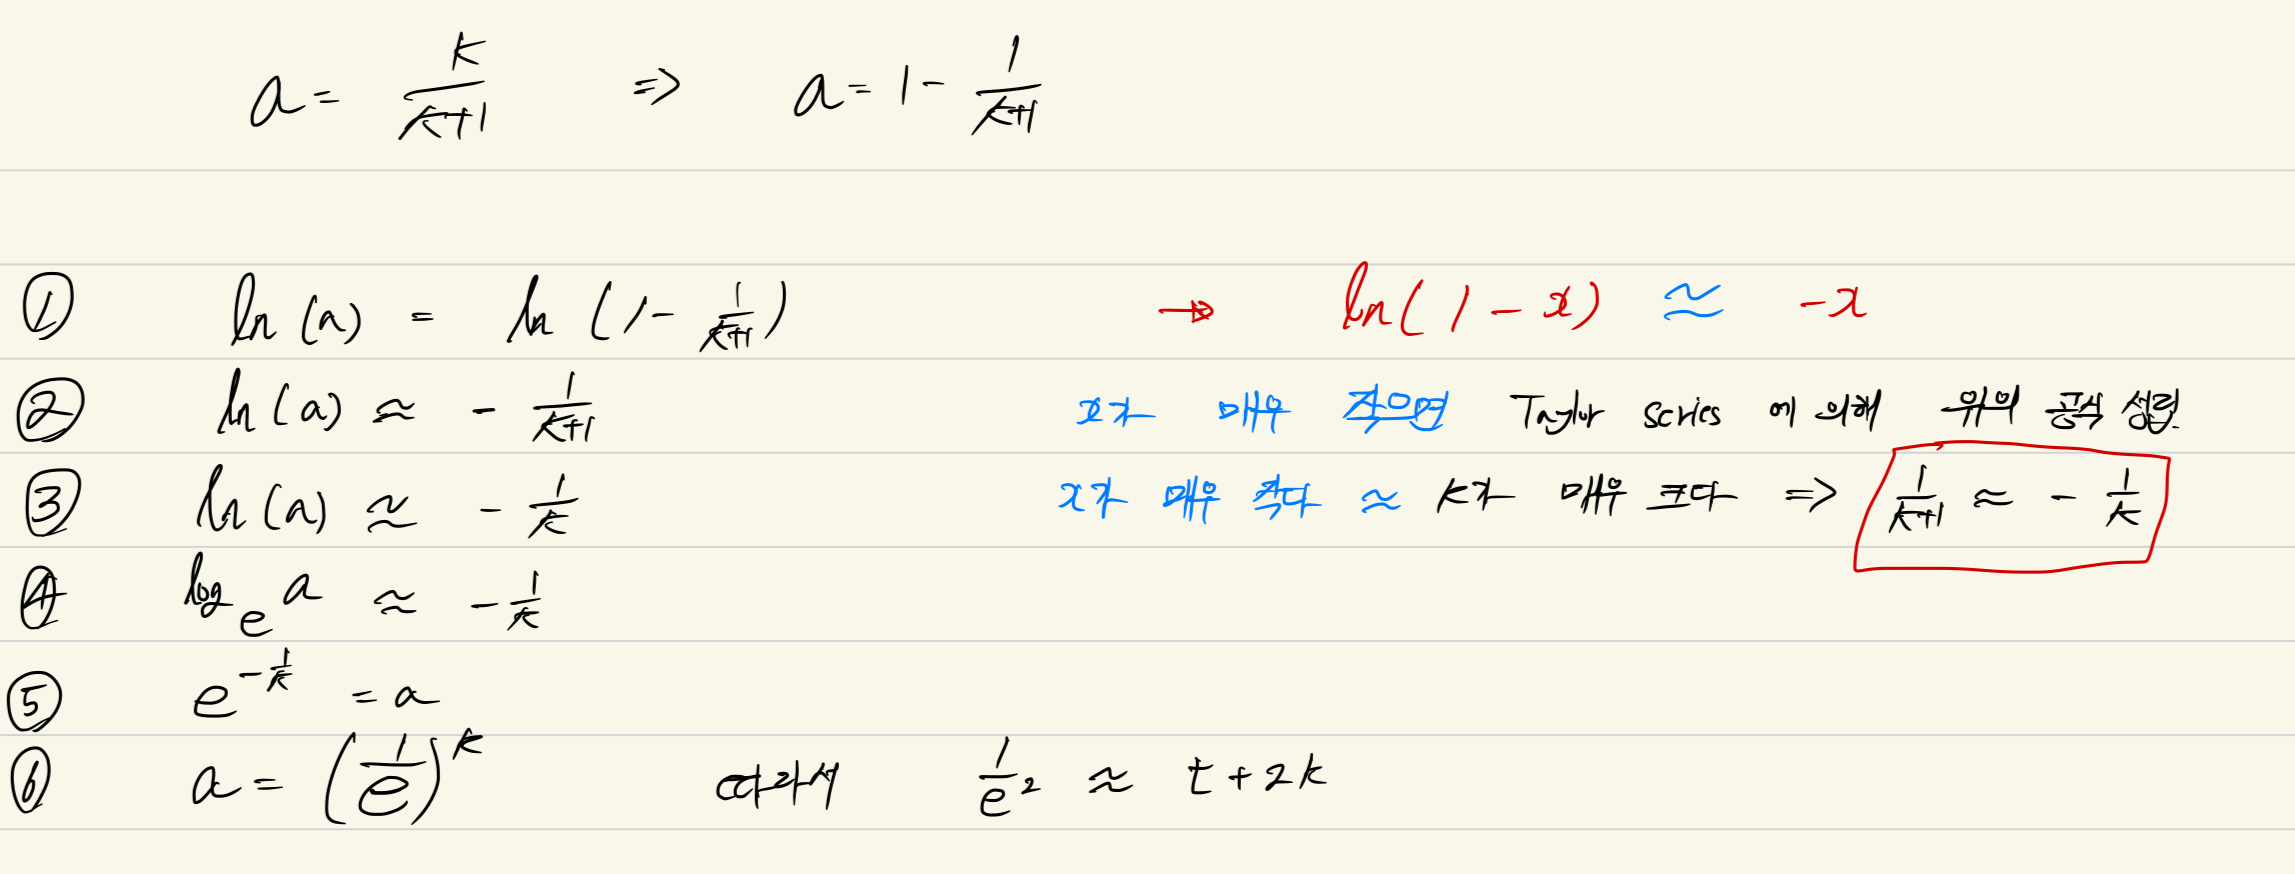 a = k/(k+1) ⇒ a = 1 - 1/(k+1)
① ln(a) = ln(1 - 1/(k+1)) → ln(1 - x) ≈ -x
② ln(a) ≈ - 1/(k+1) x가 매우 작으면 Taylor series 에 의해 위의 공식 성립.
③ ln(a) ≈ - 1/k x가 매우 작다 ≈ k가 매우 크다 ⇒ 1/(k+1) ≈ - 1/k
④ log_e a ≈ - 1/k
⑤ e^(-1/k) = a
⑥ a = (1/e)^k 따라서 1/e^2 ≈ t + 2k